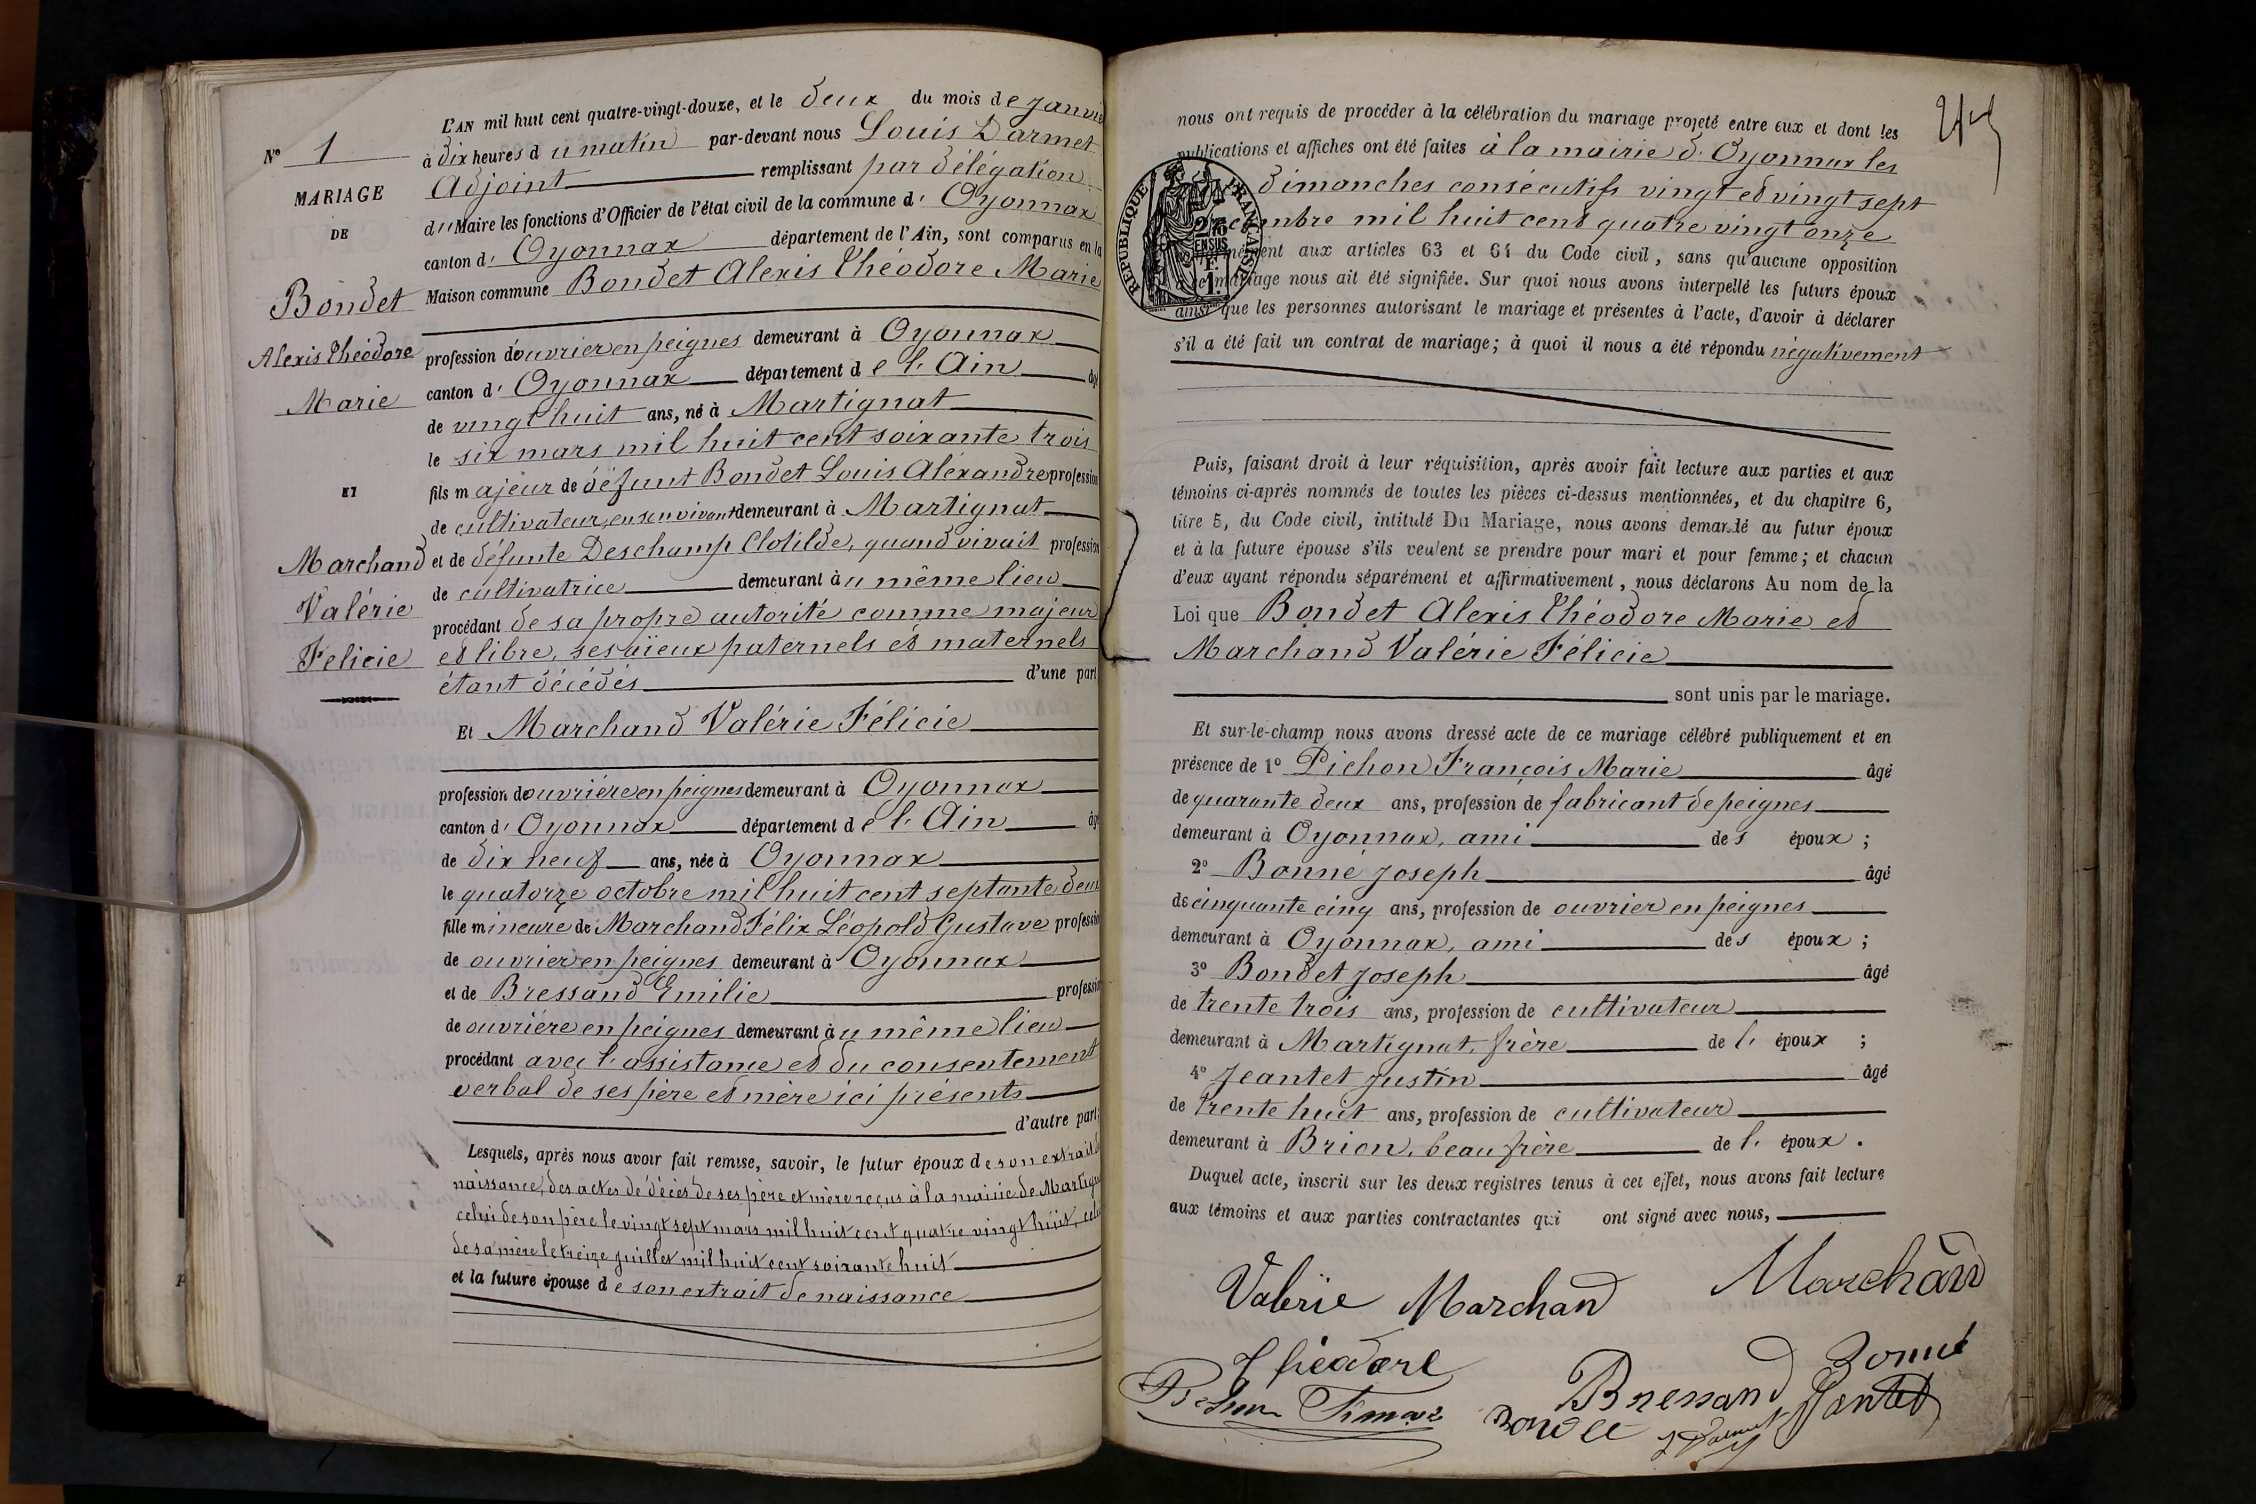 L'AN mil huit cent quatre-vingt-douze, et le deux du mois de Janvi
N° 1
à dix heures du matin par-devant nous Louis Darmet
Adjoint remplissant par délégation
MARIAGE
du Maire les fonctions d'Officier de l'état civil de la commune d' Oyonnax
DE
canton d' Oyonnax département de l'Ain, sont comparus en la
Maison commune Bondet Alexis Théodore Marie
Bondet
Alexis Théodore
Marie
profession d'ouvrier en peignes demeurant à Oyonnax
canton d' Oyonnax département de l'Ain âgé
de vingt huit ans, né à Martignat
le six mars mil huit cent soixante trois
ET
fils majeur de défunt Bondet Louis Aléxandre profession
de cultivateur, en son vivant demeurant à Martignat
Marchand
et de défunte Deschamp Clotilde, quand vivait profession
de cultivatrice demeurant au même lieu
Valérie
procédant de sa propre autorité comme majeur
Felicie
et libre, ses aïeux paternels et maternels
étant décédés d'une part
Et Marchand Valérie Félicie
profession d'ouvriére en peignes demeurant à Oyonnax
canton d' Oyonnax département de l'Ain âgé
de dix neuf ans, née à Oyonnax
le quatorze octobre mil huit cent septante deux
fille mineure de Marchand Félix Léopold Gustave profession
de ouvrier en peignes demeurant à Oyonnax
et de Bressand Emilie profession
de ouvriére en peignes demeurant au même lieu
procédant avec l'assistance et du consentement
verbal de ses père et mère ici présents
d'autre part;
Lesquels, après nous avoir fait remise, savoir, le futur époux de son extrait de
naissance, des actes de décès de ses père et mère reçus à la mairie de Martign
celui de son père le vingt sept mars mil huit cent quatre vingt huit, celui
de sa mère le treize juillet mil huit cent soixante huit
et la future épouse de son extrait de naissance
nous ont requis de procéder à la célébration du mariage projeté entre eux et dont les
publications et affiches ont été faites à la mairie d'Oyonnax les
dimanches consécutifs vingt et vingt sept
cembre mil huit cent quatre vingt onze
mément aux articles 63 et 64 du Code civil, sans qu'aucune opposition
mariage nous ait été signifiée. Sur quoi nous avons interpellé les futurs époux
ainsi que les personnes autorisant le mariage et présentes à l'acte, d'avoir à déclarer
s'il a été fait un contrat de mariage; à quoi il nous a été répondu négativement
REPUBLIQUE FRANCAISE
Puis, faisant droit à leur réquisition, après avoir fait lecture aux parties et aux
témoins ci-après nommés de toutes les pièces ci-dessus mentionnées, et du chapitre 6,
titre 5, du Code civil, intitulé Du Mariage, nous avons demandé au futur époux
et à la future épouse s'ils veulent se prendre pour mari et pour femme; et chacun
d'eux ayant répondu séparément et affirmativement, nous déclarons Au nom de la
Loi que Bondet Alexis Théodore Marie et
Marchand Valérie Félicie
sont unis par le mariage.
Et sur-le-champ nous avons dressé acte de ce mariage célébré publiquement et en
présence de 1° Pichon François Marie âgé
de quarante deux ans, profession de fabricant de peignes
demeurant à Oyonnax, ami des époux;
2° Bonné Joseph âgé
de cinquante cinq ans, profession de ouvrier en peignes
demeurant à Oyonnax, ami des époux;
3° Bondet Joseph âgé
de trente trois ans, profession de cultivateur
demeurant à Martignat, frère de l'époux;
4° Jeantet Justin âgé
de trente huit ans, profession de cultivateur
demeurant à Brion, beau frère de l'époux.
Duquel acte, inscrit sur les deux registres tenus à cet effet, nous avons fait lecture
aux témoins et aux parties contractantes qui ont signé avec nous,
Valérie Marchand Marchand
Théodore
Bonné
Bressand
Jantet
Bondet